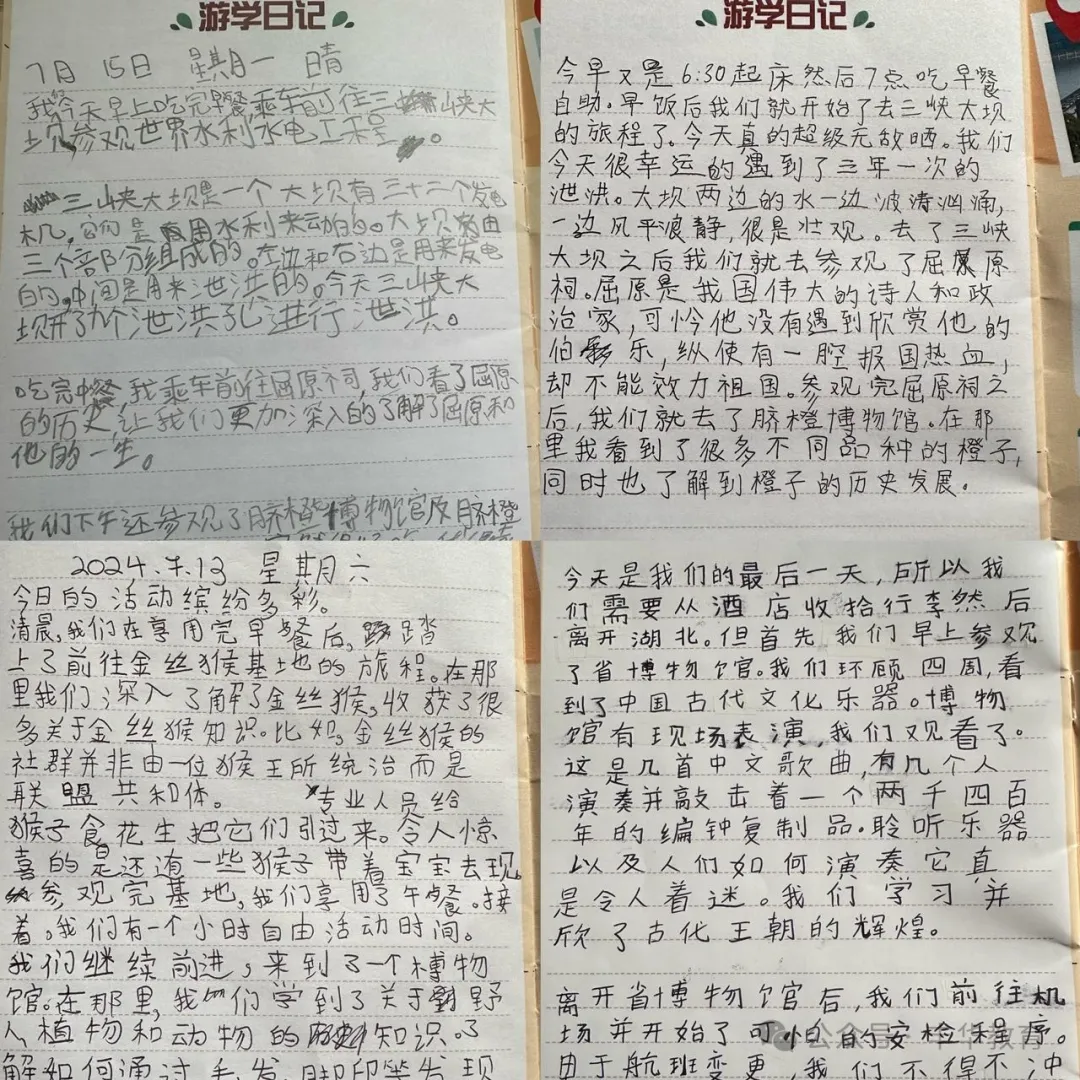 游学日记
7月 15日 星期一 晴
我们今天早上吃完早餐,乘车前往三峡大
坝,参观世界水利水电工程。
三峡大坝是一个大坝有三十二个发电
机,它们是用水利来动的。大坝由
三个部分组成的。左边和右边是用来发电
的,中间是用来泄洪的。今天三峡大
坝开了九个泄洪孔进行泄洪。
吃完中餐,我乘车前往屈原祠,我们看了屈原
的历史,让我们更加深入的了解了屈原和
他的一生。
我们下午还参观了脐橙博物馆及脐橙
游学日记
今早又是6:30起床然后7点吃早餐
自助。早饭后我们就开始了去三峡大坝
的旅程了。今天真的超级无敌晒。我们
今天很幸运的遇到了三年一次的
泄洪。大坝两边的水一边波涛汹涌,
一边风平浪静,很是壮观。去了三峡
大坝之后我们就去参观了屈原
祠。屈原是我国伟大的诗人和政
治家,可怜他没有遇到欣赏他的
伯乐,纵使有一腔报国热血,
却不能效力祖国。参观完屈原祠之
后,我们就去了脐橙博物馆。在那
里我看到了很多不同品种的橙子,
同时也了解到橙子的历史发展。
2024.7.13 星期六
今日的活动缤纷多彩。
清晨,我们在享用完早餐后,踏
上了前往金丝猴基地的旅程。在那
里我们深入了解了金丝猴,收获了很
多关于金丝猴知识。比如,金丝猴的
社群并非由一位猴王所统治而是
联盟共和体。 专业人员给
猴子食花生把它们引过来。令人惊
喜的是还有一些猴子带着宝宝去现
参观完基地,我们享用了午餐。接
着,我们有一个小时自由活动时间。
我们继续前进,来到了一个博物
馆。在那里,我们学到了关于野
人,植物和动物的知识。了
解如何通过毛发,脚印等发现
今天是我们的最后一天,所以我
们需要从酒店收拾行李然后
离开湖北。但首先,我们早上参观
了省博物馆。我们环顾四周,看
到了中国古代文化乐器。博物
馆有现场表演,我们观看了。
这是几首中文歌曲,有几个人
演奏并敲击着一个两千四百
年的编钟复制品。聆听乐器
以及人们如何演奏它真
是令人着迷。我们学习并
欣了古代王朝的辉煌。
离开省博物馆后,我们前往机
场并开始了可怕的安检程序。
由于航班变更,我们不得不冲